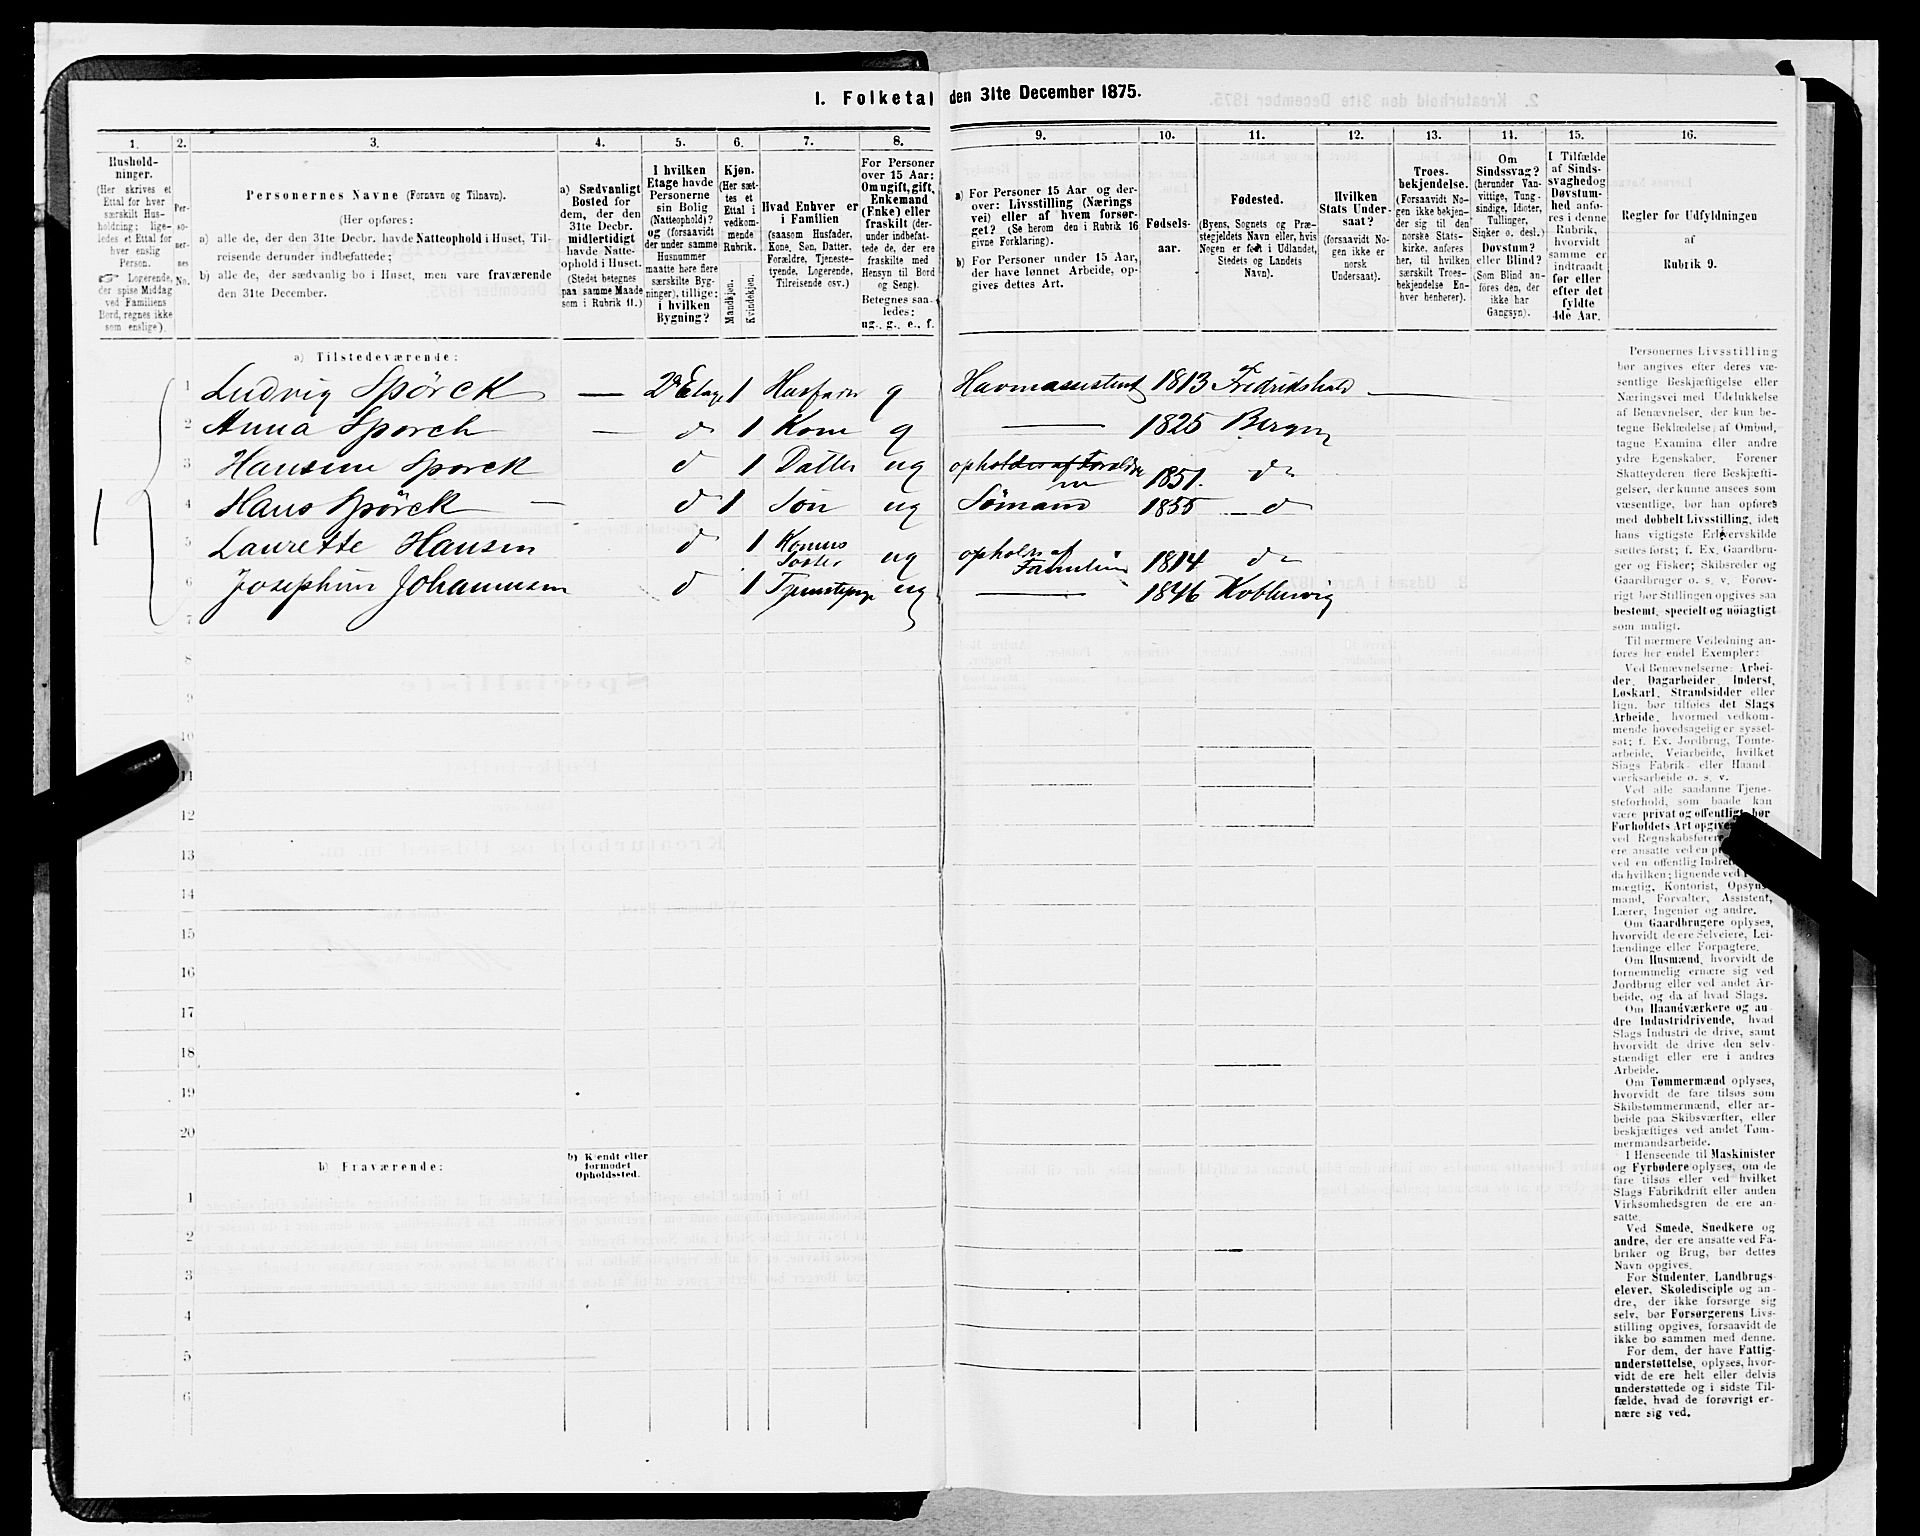 I. Folketal den 31te December 1875.
1. 2. 3. 4. 5. 6. 7. 8. 9. 10. 11. 12. 13. 14. 15. 16.
Hushold-
ninger.
(Her skrives et
Ettal for hver
særskilt Hus-
holdning; lige-
ledes et Ettal for
hver enslig
Person.
☞ Logerende,
der spise Middag
ved Familiens
Bord, regnes ikke
som enslige).
Per-
so-
ner-
nes
No.
Personernes Navne (Fornavn og Tilnavn).
(Her opføres:
a) alle de, der den 31te Decbr. havde Natteophold i Huset, Til-
reisende derunder indbefattede;
b) alle de, der sædvanlig bo i Huset, men vare fraværende
den 31te December.
a) Sædvanligt
Bosted for
dem, der den
31te Decbr.
midlertidigt
havde Natte-
ophold i Huset.
(Stedet betegnes
paa samme Maade
som i Rubrik 11.)
I hvilken
Etage havde
Personerne
sin Bolig
(Natteophold)?
og (forsaavidt
der under samme
Husnummer
maatte høre flere
særskilte Byg-
ninger), tillige:
i hvilken
Bygning?
Kjøn.
(Her sæt-
tes et
Ettal i
vedkom-
mende
Rubrik.
Mandkjøn.
Kvindekjøn.
Hvad Enhver er
i Familien
(saasom Husfader,
Kone, Søn, Datter,
Forældre, Tjeneste-
tyende, Logerende,
Tilreisende osv.)
For Personer
over 15 Aar:
Om ugift, gift,
Enkemand
(Enke) eller
fraskilt (der-
under indbefat-
tede de, der ere
fraskilte med
Hensyn til Bord
og Seng).
Betegnes saa-
ledes:
ug., g., e., f.
a) For Personer 15 Aar og der-
over: Livsstilling (Nærings
vei) eller af hvem forsør-
get? (Se herom den i Rubrik 16
givne Forklaring).
b) For Personer under 15 Aar,
der have lønnet Arbeide, op-
gives dettes Art.
Fødsels-
aar.
Fødested.
(Byens, Sognets og Præ-
stegjeldets Navn eller, hvis
Nogen er født i Udlandet,
Stedets og Landets
Navn).
Hvilken
Stats Under-
saat?
(forsaavidt No-
gen ikke er
norsk
Undersaat).
Troes-
bekjendelse.
(Forsaavidt No-
gen ikke bekjen-
der sig til den
norske Stats-
kirke, anføres
her, til hvilken
særskilt Troes-
bekjendelse En-
hver henhører).
Om
Sindssvag?
(herunder Van-
vittige, Tung-
sindige, Idioter,
Tullinger,
Sinker o. desl.)
Døvstum?
eller Blind?
(Som Blind an-
føres den, der
ikke har
Gangsyn).
I Tilfælde
af Sinds-
svaghed og
Døvstum-
hed anfø-
res i denne
Rubrik,
hvorvidt
samme er
indtraadt
før eller
efter det
fyldte
4de Aar.
Regler for Udfyldningen
af
Rubrik 9.
a) Tilstedeværende:
1 Ludvig Spörck — 2den Etage 1 Husfader g Havnassistent 1813 Fredrikshald
2 Anna Sporck do 1 Kone g — 1825 Bergen
3 Hansine Sporck do 1 Datter ug opholdes af Foræld
re 1851. do
1 4 Hans Spörck — do 1 Søn ug Sömand 1855 do
5 Laurette Hansen do 1 Konens
Søster ug opholdes af
Familien 1814 do
6 Josephine Johannesen do 1 ug — 1846
7
8
9
10
11
12
13
14
15
16
17
18
19
20
b) Fraværende:
b) Kjendt eller
formodet
Opholdssted.
1
2
3
4
5
6
Personernes Livsstilling
bør angives efter deres væ-
sentlige Beskjæftigelse eller
Næringsvei med Udelukkelse
af Benævnelser, der kun be-
tegne Beklædelse af Ombud,
tagne Examina eller andre
ydre Egenskaber. Forener
Skatteyderen flere Beskjæfti-
gelser, der kunne ansees som
væsentlige, bør han opføres
med dobbelt Livsstilling, idet
hans vigtigste Erhvervskilde
sættes først; f. Ex. Gaardbru-
ger og Fisker; Skibsreder og
Gaardbruger o. s. v. Forøv-
rigt bør Stillingen opgives saa
bestemt, specielt og nöiagtigt
som muligt.
Til nærmere Veiledning an-
føres her endel Exempler:
Ved Benævnelserne: Arbei-
der, Dagarbeider, Inderst,
Løskarl, Strandsidder eller
lign. bør tilføies det Slags
Arbeide, hvormed vedkom-
mende hovedsagelig er syssel-
sat; f. Ex. Jordbrug, Tømte-
arbeide, Veiarbeide, hvilket
Slags Fabrik- eller Haand
værksarbeide o. s. v.
Ved alle saadanne Tjene-
steforhold, som baade kan
være privat og offentligt, bør
Forholdets Art opgives
ved Regnskabsførere
ere ansatte ved en
ved en offentlig
da hvilken; lignende ved
mægtig, Kontorist, Opsyns-
mand, Forvalter, Assistent,
Lærer, Ingeniør og andre.
Om Gaardbrugere oplyses,
hvorvidt de ere Selveiere, Lei-
lændinge eller Forpagtere.
Om Husmænd, hvorvidt de
fornemmelig ernære sig ved
Jordbrug eller ved andet Ar-
beide, og da af hvad Slags.
Om Haandværkere og an
dre Industridrivende, hvad
Slags Industri de drive, samt
hvorvidt de drive den selv-
stændigt eller ere i andres
Arbeide.
Om Tømmermænd oplyses,
hvorvidt de fare tilsøs som
Skibstømmermænd, eller ar-
beide paa Skibsværfter, eller
beskjæftiges ved andet Tøm-
mermandsarbeide.
I Henseende til Maskinister
og Fyrbødere oplyses, om de
fare tilsøs eller ved hvilket
Slags Fabrikdrift eller anden
Virksomhedsgren de ere an-
satte.
Ved Smede, Snedkere og
andre, der ere ansatte ved Fa-
briker og Brug, bør dettes
Navn opgives.
For Studenter, Landbrugs-
elever, Skoledisciple og an-
dre, der ikke forsørge sig
selv, bør Forsørgerens Livs-
stilling opgives, forsaavidt de
ikke bo sammen med denne.
For dem, der have Fattig-
understøttelse, oplyses, hvor-
vidt de ere helt eller delvis
understøttede og i sidste Til-
fælde, hvad de forøvrigt er-
nære sig ved.